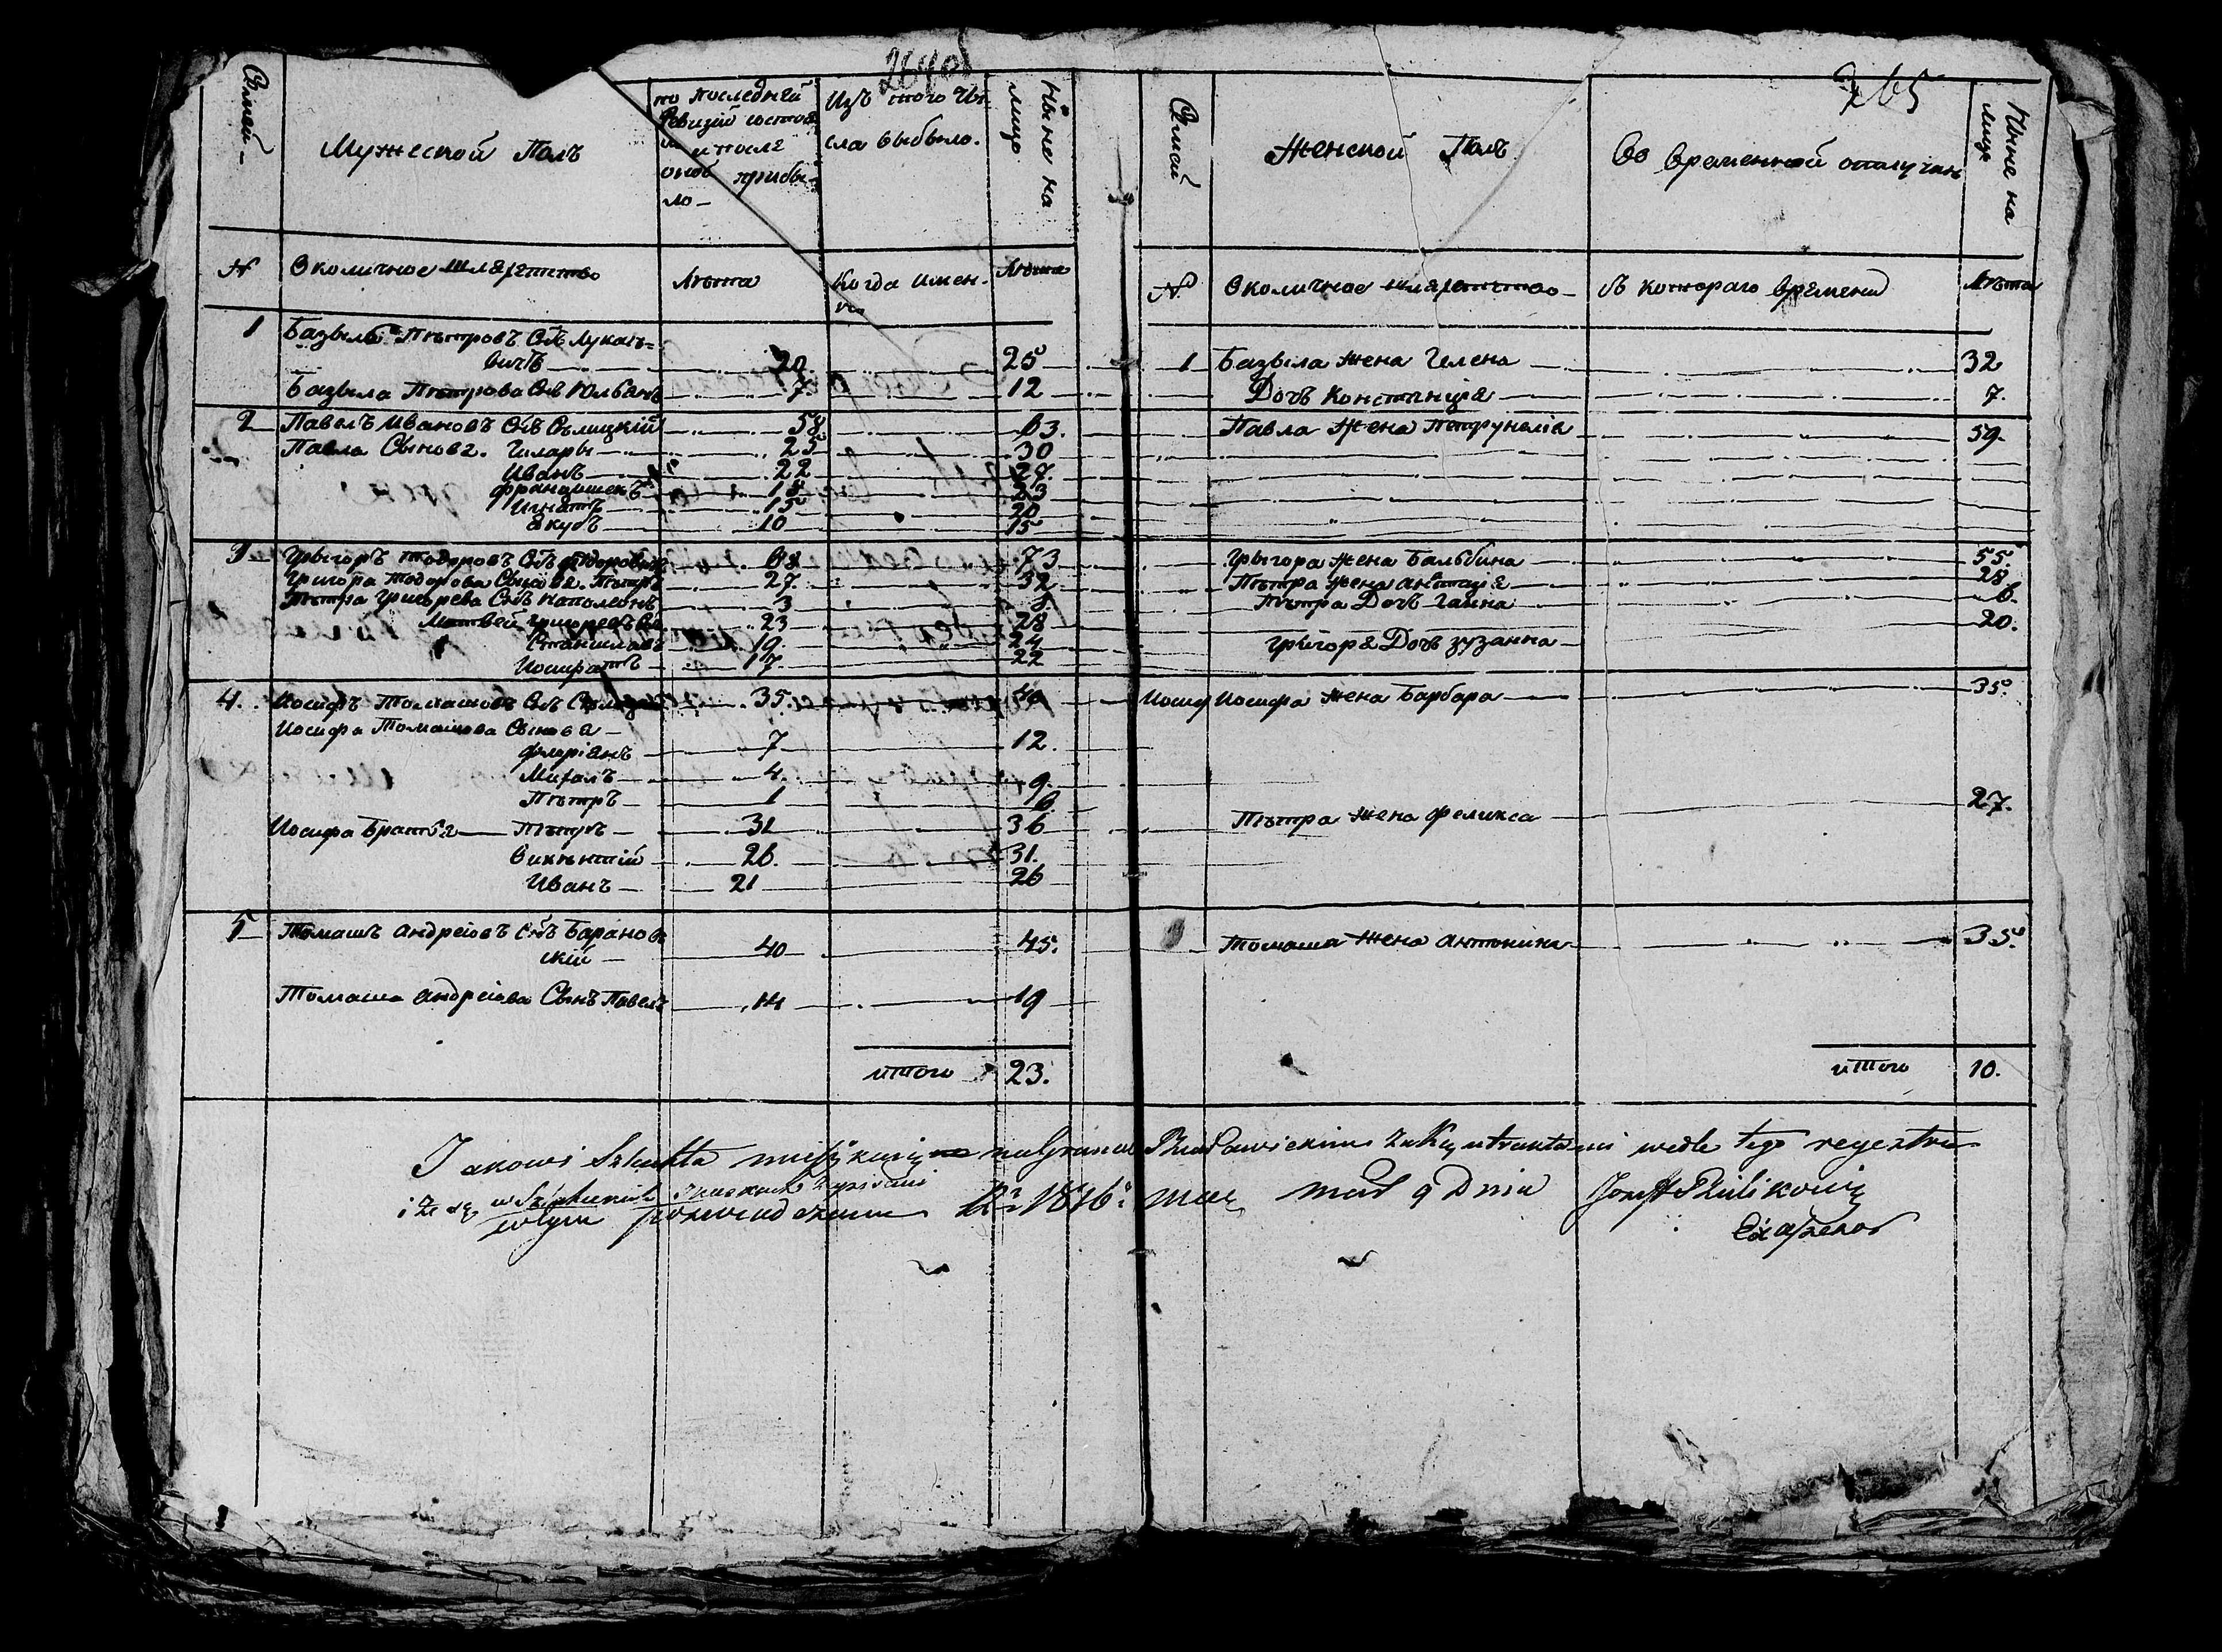 264об
265
Семей
Мужеской Полъ
по последней
Ревизіи состоя
и после
оной прибы-
ло
Изъ того Чи
сла выбыло.
Ныне на
лицо
№
Околичное шляхетство
Лѣта
Когда имен-
но
Лѣта
1
Базыль Пѣтровъ Снъ Лукаше-
вичъ 20 25
Базыла Пѣтрова Снъ Юльянъ 7 12
2 Павелъ Ивановъ Снъ Сѣлицкій 58 63.
Павла Сынова. Гиляры 25 30
Иванъ 22 27.
Францишекъ 18 23
Игнатъ 15 20
Якубъ 10 15
3 Грыгоръ Тодоровъ Снъ Ѳедоровичъ 68 73
Григора Тодорова Сынова. Пѣтръ 27 32
Пѣтра Григорева Снъ Наполеонъ 3 8
Матвей Григоревъ Снъ 23 28
Станиславъ 19. 24
Иосифатъ 17 22
4. Иосифъ Томашовъ Снъ 35. 40
Иосифа Томашова Сынова
Флоріянъ 7 12.
Михалъ 4. 9.
Пѣтръ 1 6.
Иосифа Братья Пѣтръ 31 36
Викѣнтій 26. 31.
Иванъ 21 26
5 Томашъ Андреіовъ Снъ Баранов
скій 40 45.
Томаша Андреіова Сынъ Павелъ 14 19
итого 23.
Семей
Женской Полъ
Во временной отлучкѣ
Ныне на
лицо
№
Околичное шляхетство
Съ котораго времени
Лѣта
1 Базыла жена Гелена 32
Дочь Констанція 7.
Павла Жена Петрунелія 59.
Грыгора жена Бальбина 55.
Пѣтра жена 28
Пѣтра Дочь Ганна 6.
Грыгоря Дочь Зузанна 20.
Иосиф Иосифа жена Барбара 35.
Пѣтра жена Феликса 27.
Томаша жена Антонина 35.
итого 10.
Jakowi Szlachta na Gruncie wedle tego regestru
i że są 1816 mar 9 Dnia Jozeff